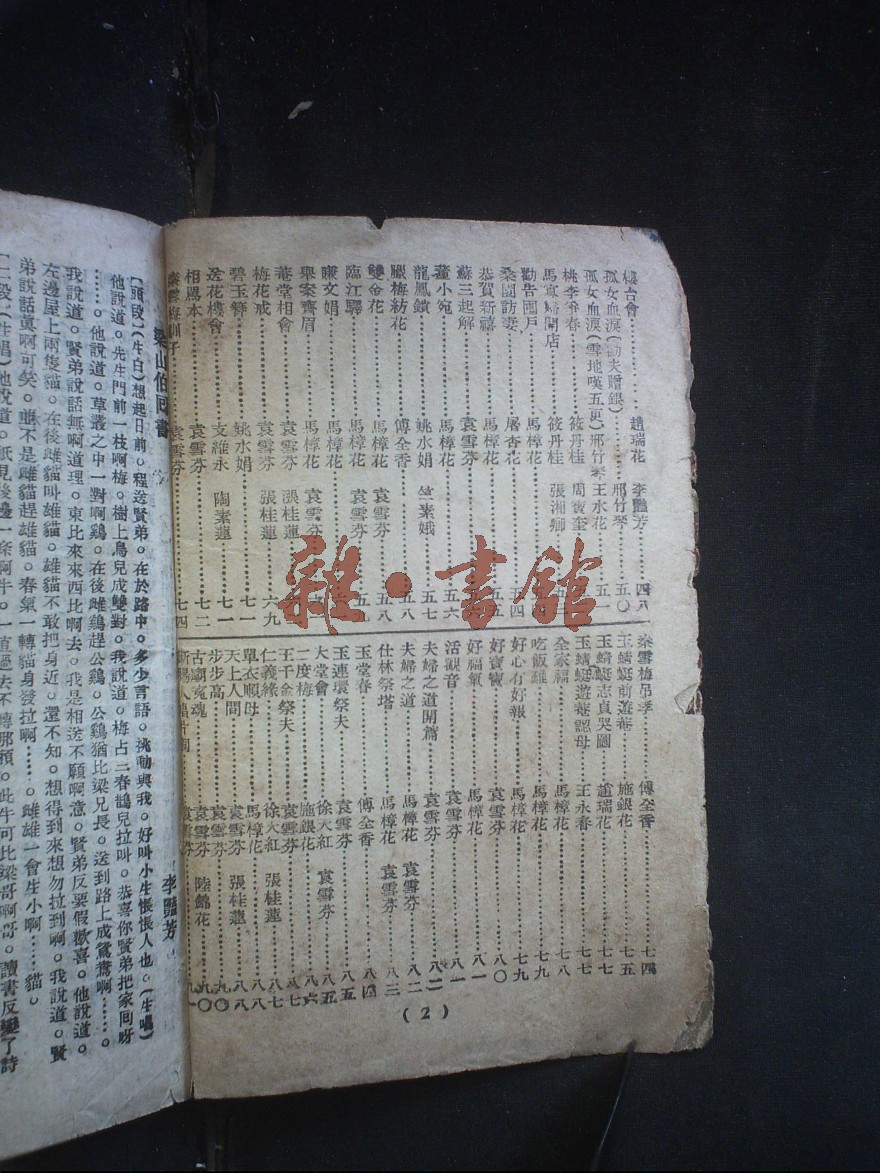 樓台會 趙瑞花 李豔芳 四八
孤女血淚(勸夫贈銀) 邢竹琴 五〇
孤女血淚(雪地嘆五更) 邢竹琴 王水花 五一
桃李爭春 筱丹桂 周寶奎
馬寡婦開店 筱丹桂 張湘卿
勸告國戶 馬樟花
桑園訪妻 屠杏花 五四
恭賀新禧 馬樟花 五五
蘇三起解 袁雪芬
董小宛 馬樟花 五六
龍鳳鎖 姚水娟 竺素娥 五七
臘梅紡花 傅全香 五八
雙金花 馬樟花 袁雪芬 五九
臨江驛 馬樟花 袁雪芬
賺文娟 馬樟花
舉案齊眉 馬樟花 袁雪芬
菴堂相會 袁雪芬 張桂蓮
梅花戒 袁雪芬 張桂蓮 六九
碧玉簪 姚水娟 七一
送花樓會 支維永 陶素蓮 七一
相罵本 袁雪芬 七二
秦雪梅訓子 袁雪芬 七四
秦雪梅吊孝 傅全香 七四
玉蜻蜓前遊庵 施銀花 七五
玉蜻蜓志貞哭圖 趙瑞花 七七
玉蜻蜓遊菴認母 王永春 七七
全家福 馬樟花 七八
吃飯難 馬樟花 七九
好心有好報 馬樟花 七九
好寶寶 袁雪芬 八〇
好福氣 馬樟花 八一
活觀音 袁雪芬 八一
夫婦之道開篇 袁雪芬 八二
夫婦之道 馬樟花 袁雪芬
仕林祭塔 馬樟花 袁雪芬 八三
玉堂春 傅全香 八四
玉連環祭夫 袁雪芬 八五
大堂會 徐天紅 袁雪芬 八五
二度梅 施銀花 八六
王千金祭夫 袁雪芬 八七
仁義緣 徐天紅 張桂蓮 八七
單衣順母 馬樟花 八八
天上人間 袁雪芬 張桂蓮 八八
步步高 袁雪芬 九〇
古廟冤魂 袁雪芬 陸錦花 九〇
袁雪芬
(2)
梁山伯回書 李豔芳
〔頭段〕(生白)想起日前。程送賢弟。在於路中。多少言語。挑動與我。好叫小生悵悵人也。(生唱)
他說道。先生門前一枝啊梅。樹上鳥兒成雙對。我說道。梅占二春鵲兒拉叫。恭喜你賢弟把家囘呀
……。他說道。草叢之中一對啊鷄。在後雌鷄趕公鷄。公鷄猶比梁兄長。送到路上成鴛鴦啊……。
我說道。賢弟說話無啊道理。東比來來西比啊去。我是相送不願啊意。賢弟反要假歡喜。他說道。
左邊屋上兩隻貓。在後雌貓叫雄貓。雄貓不敢把身近。還不知。想得到來想勿拉到啊。我說道。賢
弟說話眞啊可笑。並不是雌貓趕雄貓。春氣一轉貓身發拉啊……。雌雄一會生小啊……貓。
〔二段〕(生唱)他說道。祇見後邊一條啊牛。一直過去不轉那頭。此牛可比梁哥啊哥。讀書反變了詩
雜·書館